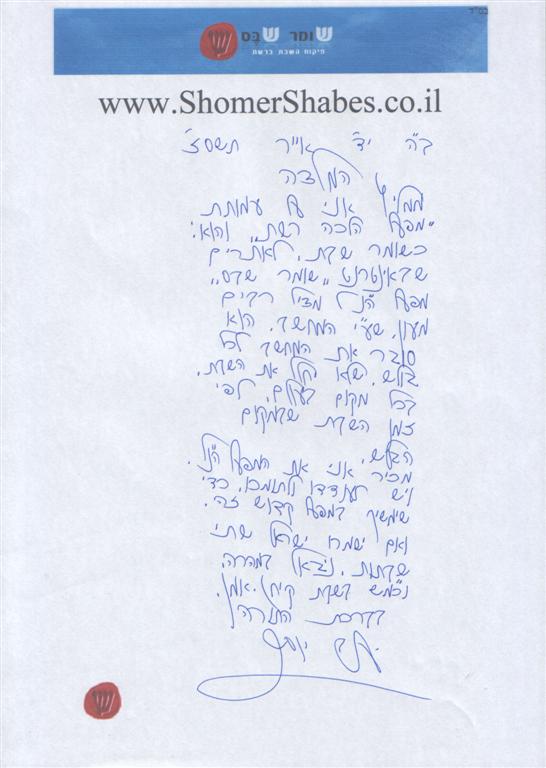 בס"ד
שומר שבס
פיקוח השבת ברשת
www.ShomerShabes.co.il
ב"ה יד' אייר תשסז'
המלצה
ממליץ אני על עמותת
"מפעל הלכה רשת" והוא:
כשומר שבת. לאתרים
שבאינטרנט "שומר שבס"
מפעל הנ"ל מציל רבים
מעון. שע"י המחשב. הוא
סוגר את המחשב לכל
גולש. שלא יחלל את השבת.
בכל מקום בעולם. לפי
זמן השבת שבמקום
הגולש.
מכיר אני את המפעל הנ"ל.
ויש לעודדו ולתומכו. כדי
שימשיך במפעל קדוש זה.
ואם ישמרו ישראל שתי
שבתות. ניגאל במהרה.
בברכת התורה